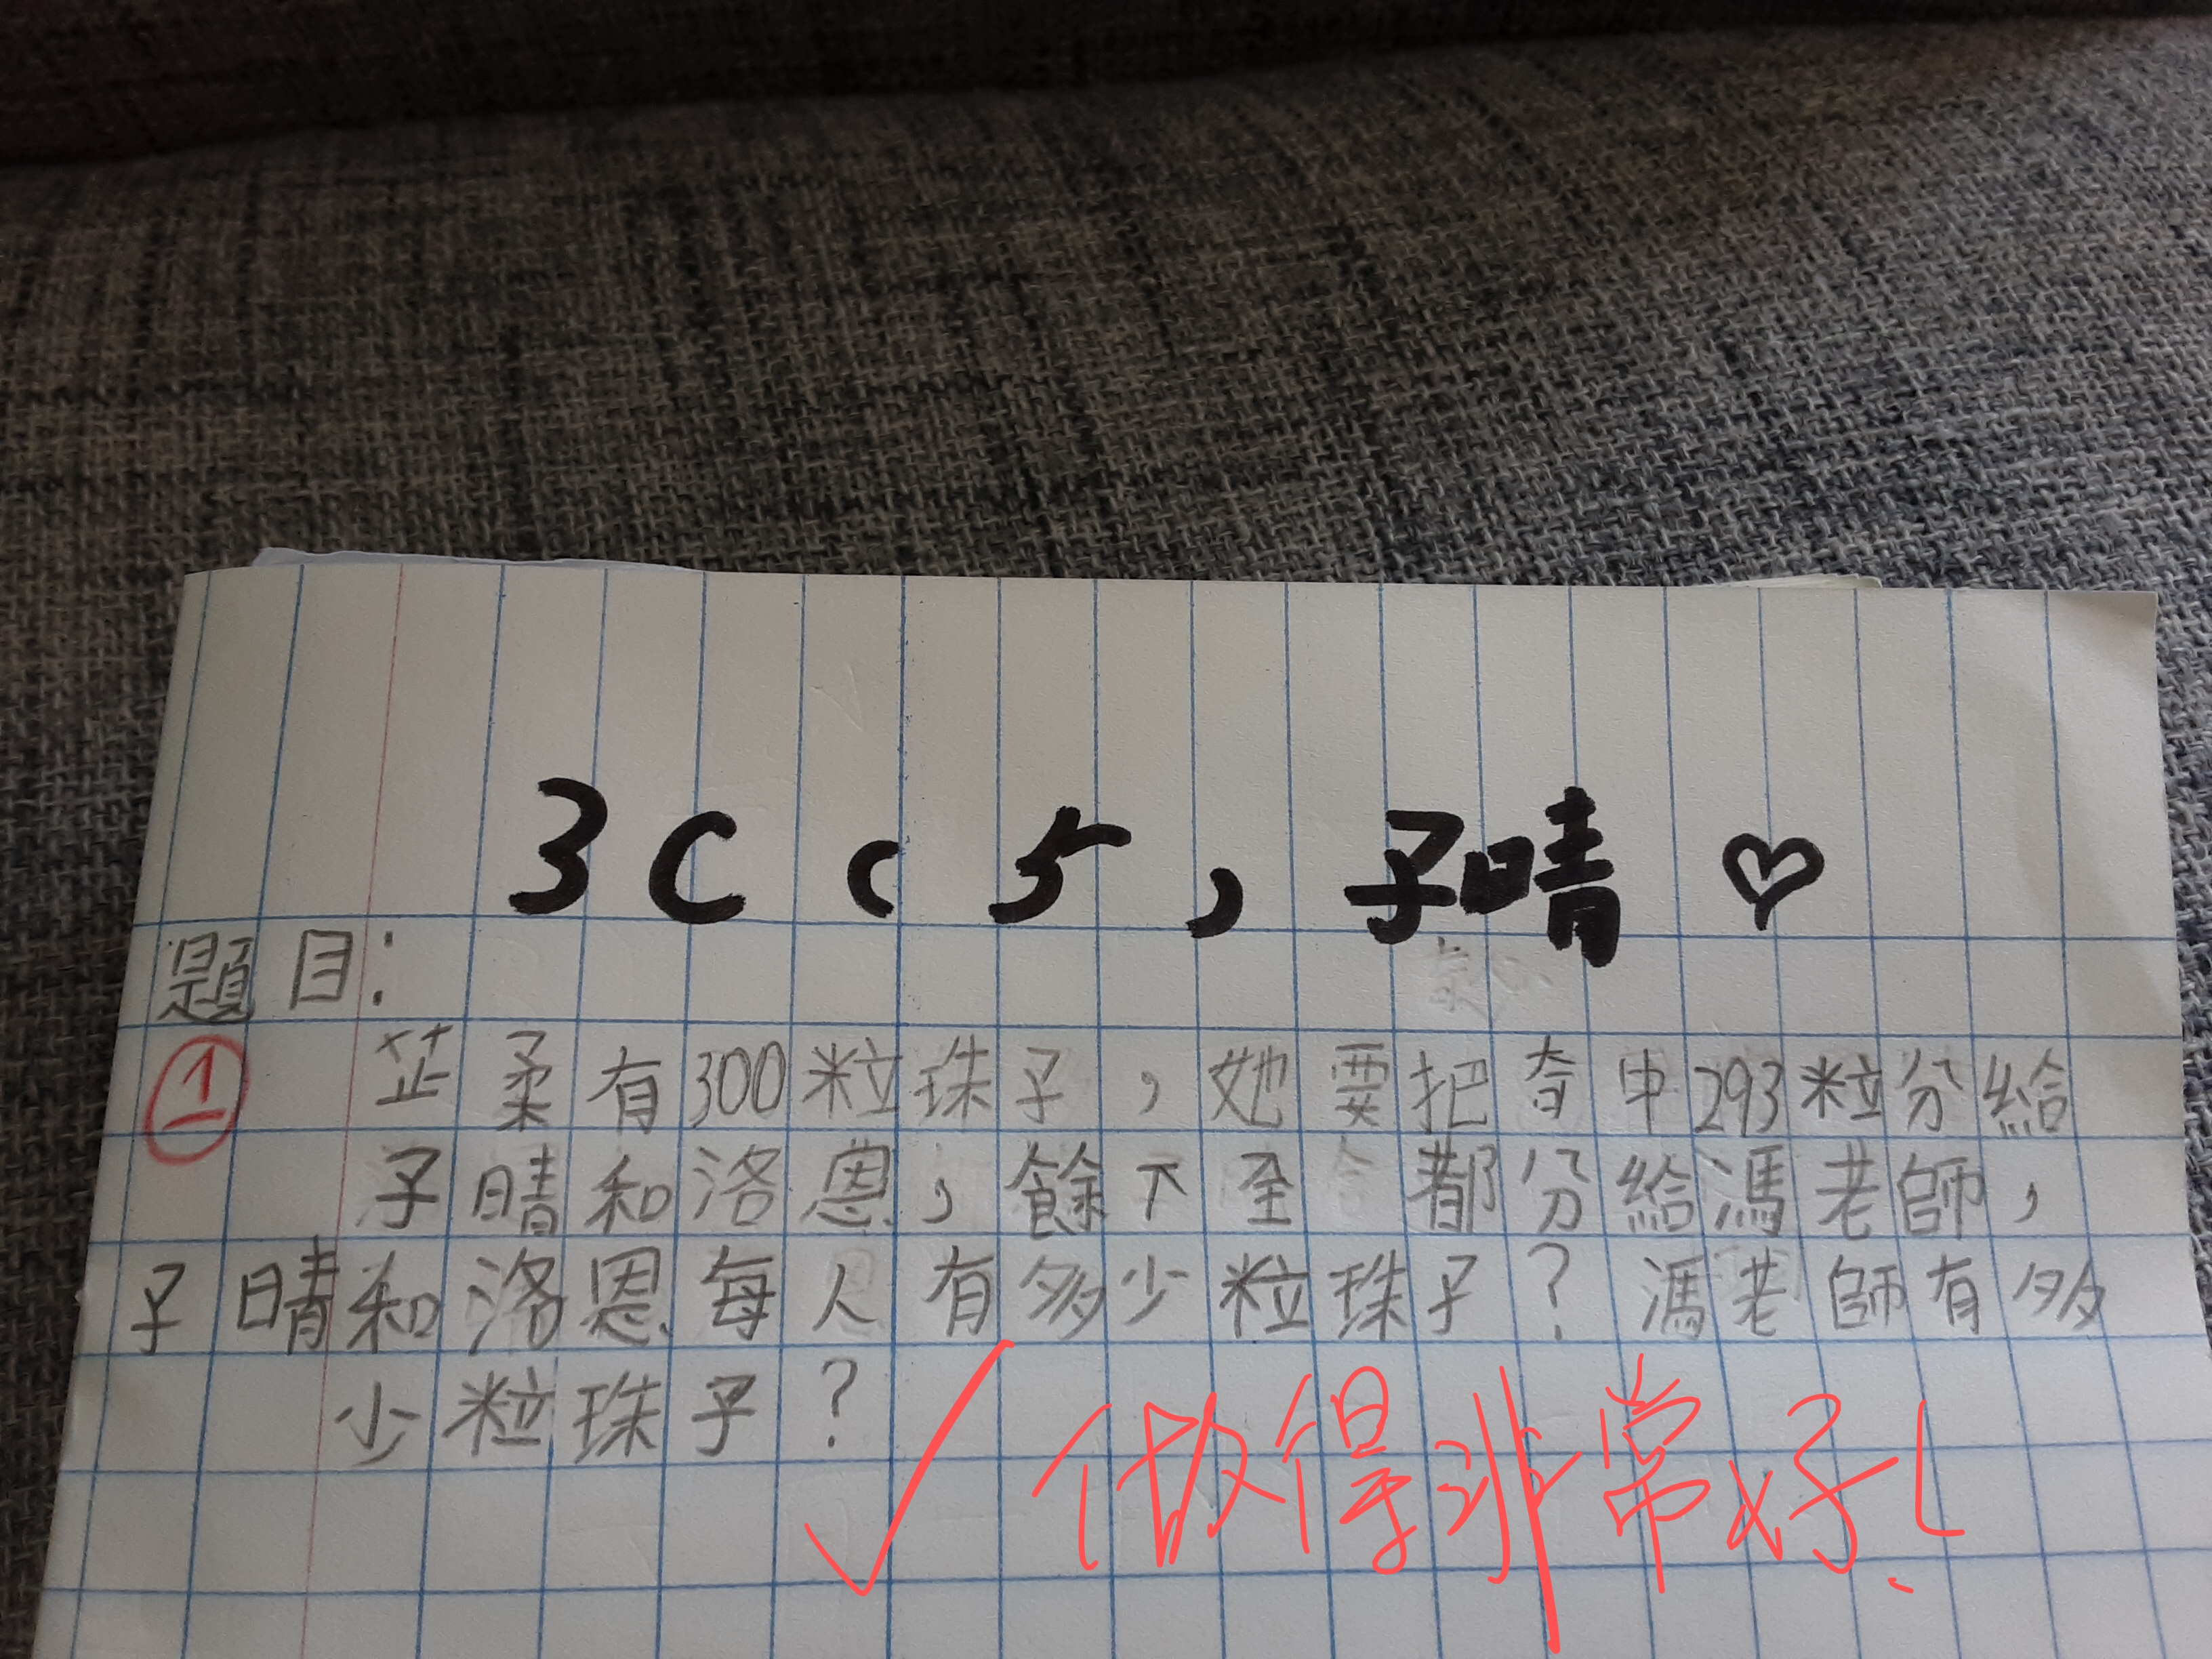 3C(5)子晴♡
題目:
① 芷柔有300粒珠子,她要把其中293粒分給
子晴和洛恩,餘下全都分給馮老師,
子晴和洛恩每人有多少粒珠子?馮老師有多
少粒珠子?
✓ 做得非常好!